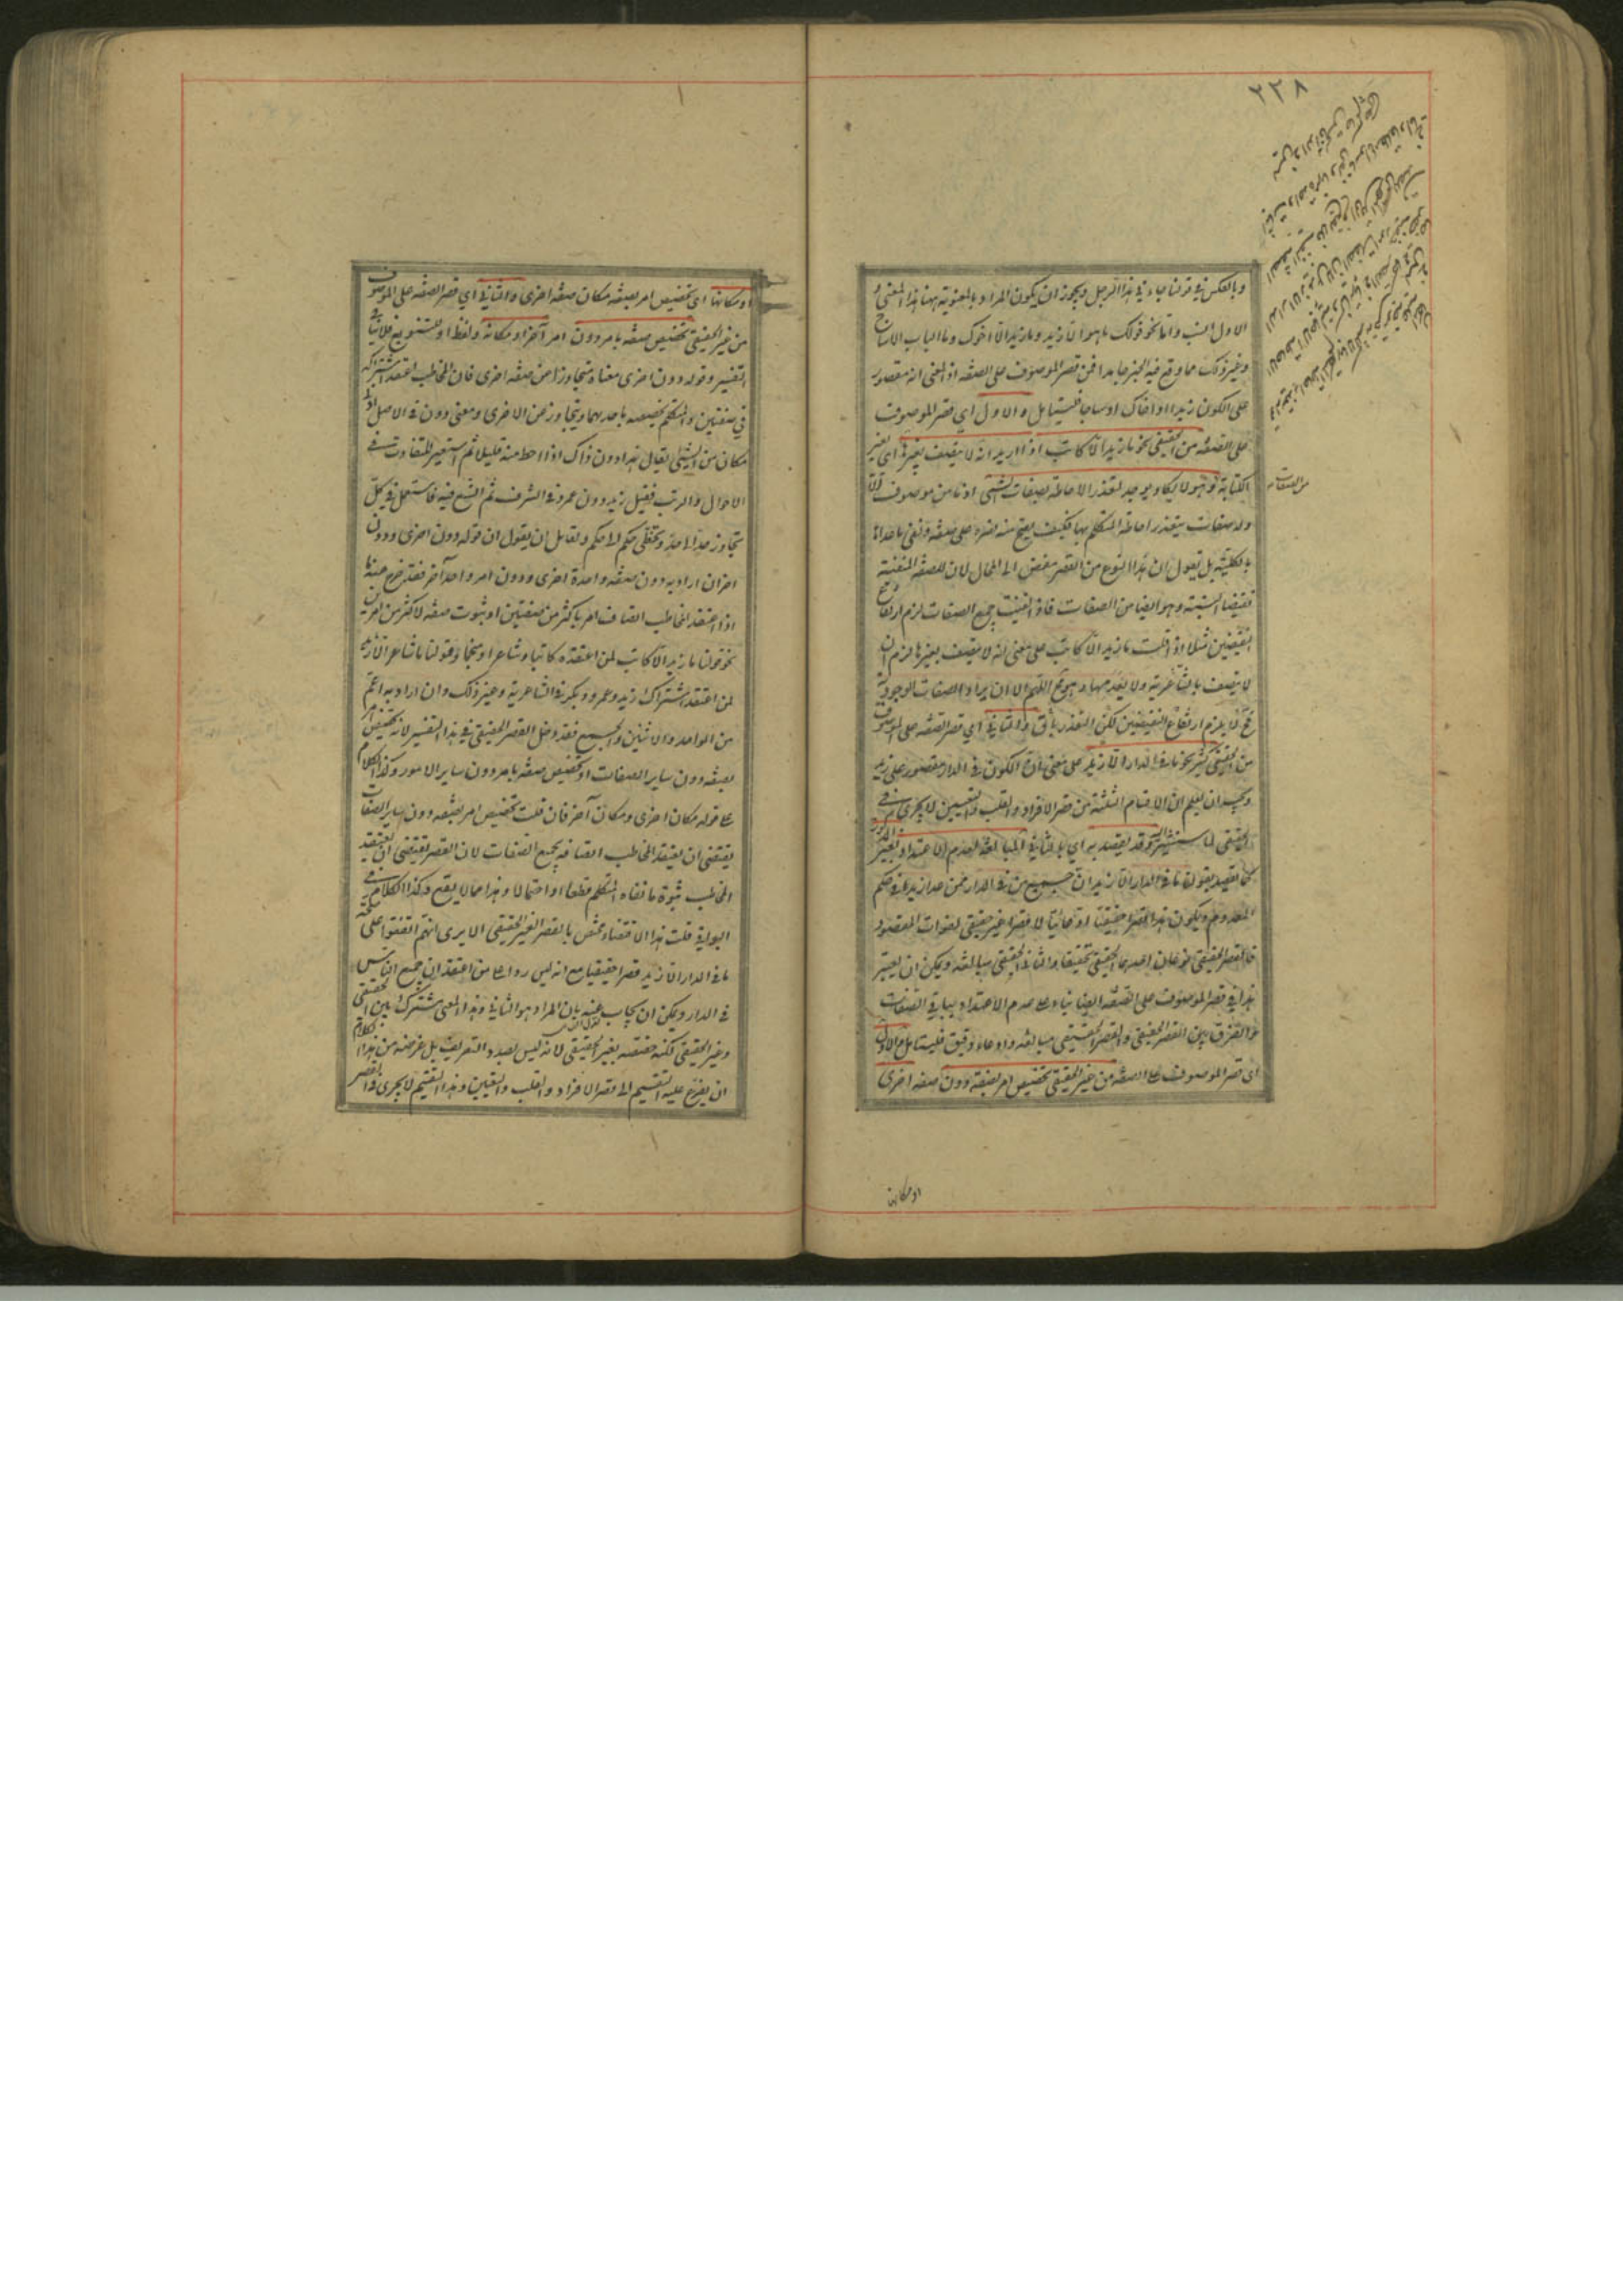 ٢٢٨
وبالعكس في قولنا جاءني هذا الرجل ويجوز ان يكون المراد بالمعنوية ههنا هذا المعنى و
الاول انسب واما نحو قولك ما هو الا زيد وما زيد الا اخوك وما الباب الا ساج
وغير ذلك مما وقع فيه الخبر جامدا فمن قصر الموصوف على الصفة اذ المعنى انه مقصور
على الكون زيدا او اخاك او ساجا فليتامل والاول اي قصر الموصوف
على الصفة من الحقيقي نحو ما زيد الا كاتب اذا اريد انه لا يتصف بغيرها اي بغير
الكتابة وهو لا يكاد يوجد لتعذر الاحاطة بصفات الشيء اذ ما من موصوف الا
وله صفات يتعذر احاطة المتكلم بها فكيف يصح منه قصره على صفة ونفي ما عداها
بالكلية بل نقول ان هذا النوع من القصر مفض الى المحال لان للصفة المنفية
نقيضا البتة وهو ايضا من الصفات فاذا نفيت جميع الصفات لزم ارتفاع
النقيضين مثلا اذا قلت ما زيد الا كاتب على معنى انه لا يتصف بغيرها لزم ان
لا يتصف بالشاعرية ولا بعدمها وهو مح اللهم الا ان يراد الصفات الوجودية
فح لا يلزم ارتفاع النقيضين لكن التعذر باق والثاني اي قصر الصفة على الموصوف
من الحقيقي كثير نحو ما في الدار الا زيد على معنى ان الكون في الدار مقصور على زيد
ويجب ان يعلم ان الاقسام الثلثة من قصر الافراد والقلب والتعيين لا يجري في
الحقيقي لما سنشير وقد يقصد به اي بالثاني المبالغة لعدم الاعتداد بغير المذكور
كما يقصد بقولنا ما في الدار الا زيد ان جميع من في الدار ممن عدا زيد في حكم
المعدوم ويكون هذا قصرا حقيقيا ادعائيا لا قصرا غير حقيقي لفوات المقصود
فالقصر الحقيقي نوعان احدهما الحقيقي تحقيقا والثاني الحقيقي مبالغة ويمكن ان يعتبر
هذا في قصر الموصوف على الصفة ايضا بناء على عدم الاعتداد بباقي الصفات
والفرق بين القصر الحقيقي والقصر الحقيقي مبالغة وادعاء دقيق فليتامل والاول
اي قصر الموصوف على الصفة من غير الحقيقي تخصيص امر بصفة دون صفة اخرى
من الصفات
او مكانها
او مكانها اي تخصيص امر بصفة مكان صفة اخرى والثاني اي قصر الصفة على الموصوف
من غير الحقيقي تخصيص صفة بامر دون امر آخر او مكانه ولفظ او للتنويع فلا ينافي
التفسير وقوله دون اخرى معناه متجاوزا عن صفة اخرى فان المخاطب اعتقد اشتراكه
في صفتين والمتكلم يخصصه باحديهما ويتجاوز عن الاخرى ومعنى دون في الاصل ادنى
مكان من الشيء يقال هذا دون ذاك اذا احط منه قليلا ثم استعير للتفاوت في
الاحوال والرتب فقيل زيد دون عمرو في الشرف ثم اتسع فيه فاستعمل في كل
تجاوز حد الى حد وتخطي حكم الى حكم ولقائل ان يقول ان قوله دون اخرى ودون
اخر ان اراد به دون صفة واحدة اخرى ودون امر واحد آخر فقد خرج عنه ما
اذا اعتقد المخاطب اتصاف امر باكثر من صفتين او ثبوت صفة لاكثر من امرين
نحو قولنا ما زيد الا كاتب لمن اعتقده كاتبا وشاعرا ومنجما وقولنا ما شاعر الا زيد
لمن اعتقد اشتراك زيد وعمرو وبكر في الشاعرية وغير ذلك وان اراد به اعم
من الواحد والاثنين والجميع فقد دخل القصر الحقيقي في هذا التفسير لانه تخصيص امر
بصفة دون ساير الصفات او تخصيص صفة بامر دون ساير الامور وكذا الكلام
على قوله مكان اخرى ومكان آخر فان قلت تخصيص امر بصفة دون ساير الصفات
يقتضي ان يعتقد المخاطب اتصافه بجميع الصفات لان القصر يقتضي ان يعتقد
المخاطب ثبوت ما نفاه المتكلم قطعا او احتمالا وهذا مما لا يقع وكذا الكلام في
البواقي قلت هذا الاقتضاء مختص بالقصر الغير الحقيقي الا يرى انهم اتفقوا على صحة
ما في الدار الا زيد قصرا حقيقيا مع انه ليس ردا على من اعتقد ان جميع الناس
في الدار ويمكن ان يجاب عنه بان المراد هو الثاني وهذا المعنى مشترك بين الحقيقي
وغير الحقيقي لكنه خصصه بغير الحقيقي لانه ليس بصدد التعريف بل غرضه من هذا الكلام
ان يفرع عليه التقسيم الى قصر الافراد والقلب والتعيين وهذا التقسيم لا يجري في القصر